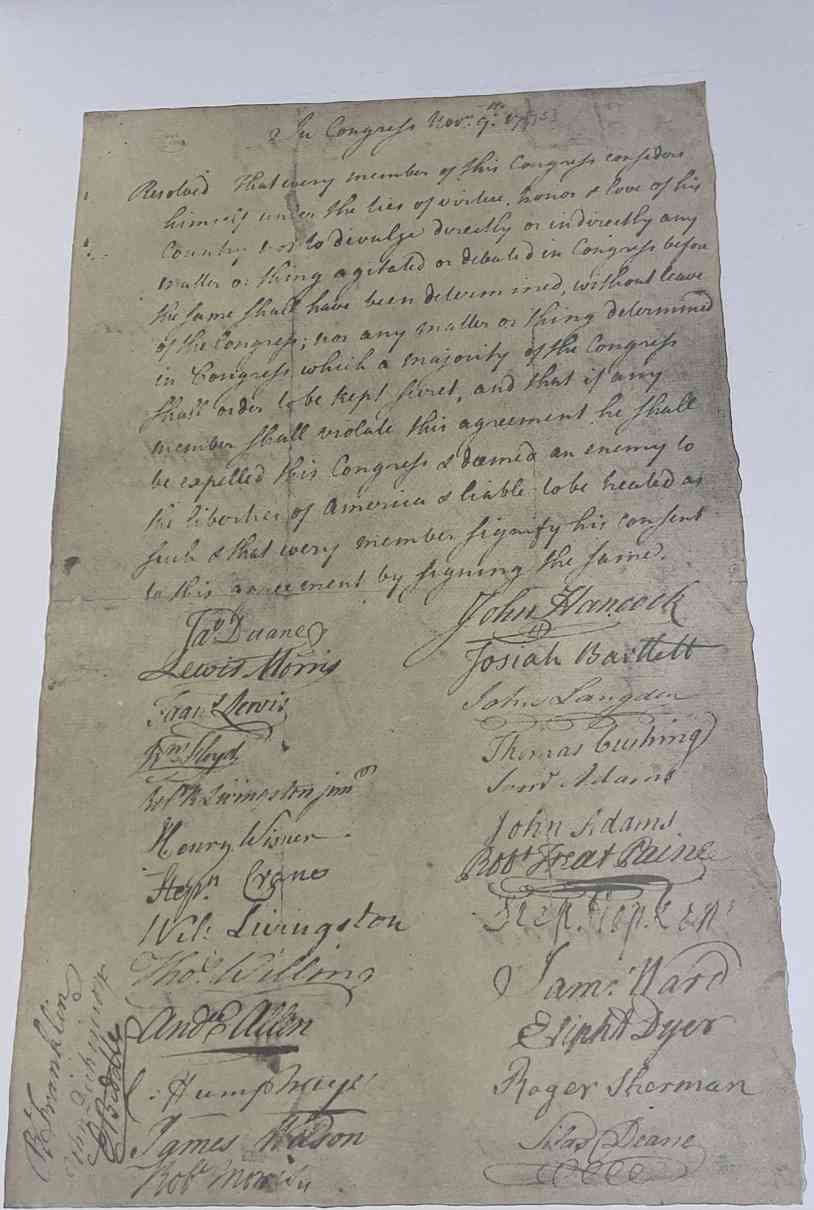 In Congress Nov.r 9.th 1775
Resolved That every member of this Congress considers
himself under the ties of virtue, honor & love of his
Country not to divulge directly or indirectly any
matter or thing agitated or debated in Congress before
the same shall have been determined, without leave
of the Congress; nor any matter or thing determined
in Congress which a majority of the Congress
shall order to be kept secret, and that if any
member shall violate this agreement he shall
be expelled this Congress & deemed an enemy to
the liberties of America & liable to be treated as
such & that every member signify his consent
to this agreement by signing the same.
Jas Duane
Lewis Morris
Frans Lewis
Wm Floyd
Robt R Livingston junr
Henry Wisner
Stepn Crane
Wil: Livingston
Thos Willing
Andw Allen
C: Humphreys
James Wilson
Robt Morris
B Franklin
John Dickinson
E Biddle
John Hancock
Josiah Bartlett
John Langdon
Thomas Cushing
Saml Adams
John Adams
Robt Treat Paine
Step. Hopkins
Sam: Ward
Eliphlt Dyer
Roger Sherman
Silas Deane